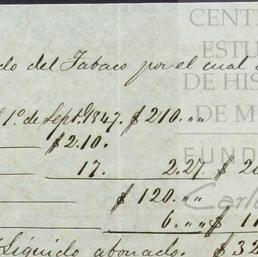 CENT
ESTU
do del Tabaco por el cual
DE HIS
1º de Sept. 1847. $ 210. ""
DE M
$2.10.
FUND
17. 2.27. $ 20
$ 120. ""
Carlo
6. "" $ 11
Líquido abonado. $ 32